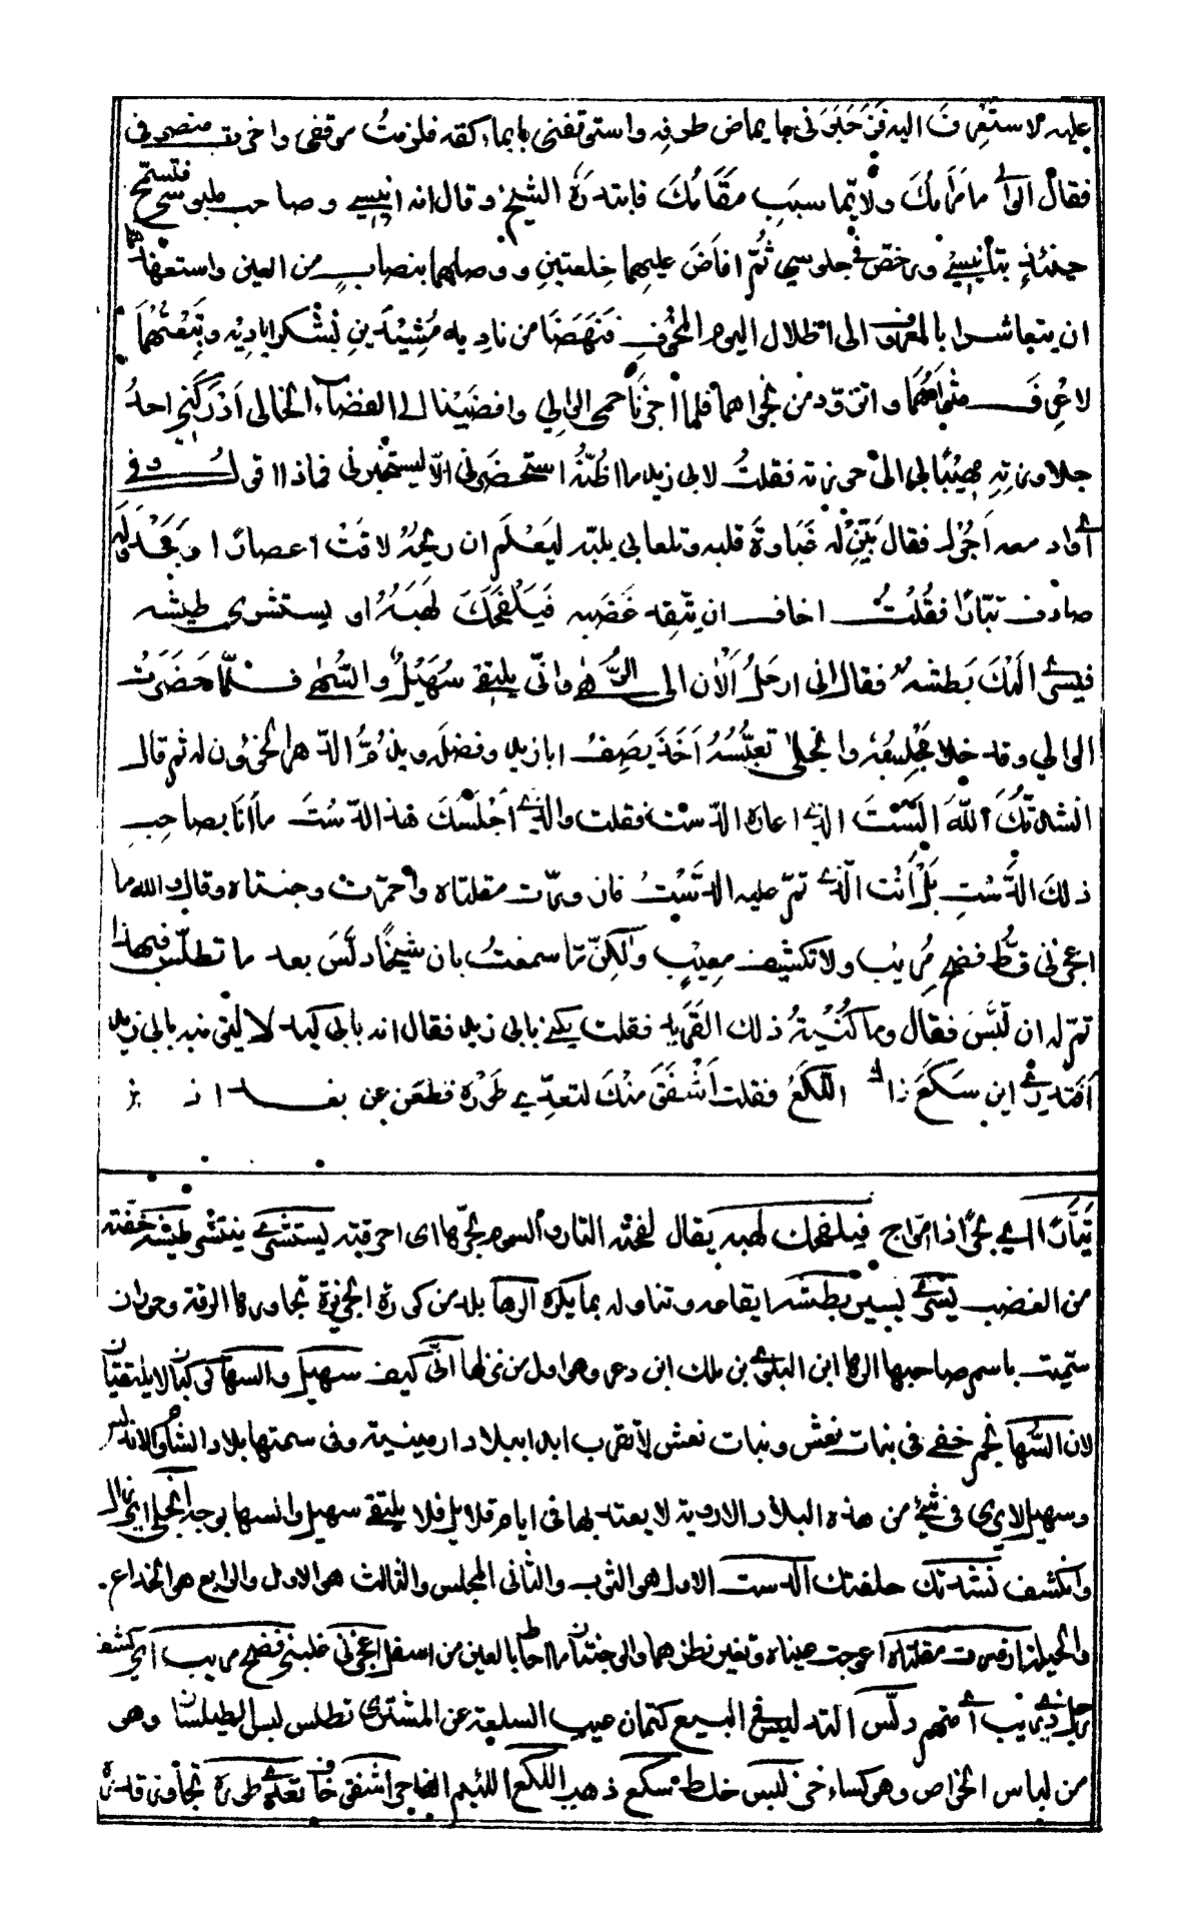 عليه لاستعرف اليه فزحلقني بايماض طرفه واستوقفني بايماء كفه فلزمت موقفي واخرت منصرفي
فقال الوالي ما مرامك ولايّما سبب مقامك فابتدره الشيخ وقال انه انيسي وصاحب ملبوسي فتسمح
حينئذ بتأنيسي ورخص في جلوسي ثمّ افاض عليهما خلعتين ووصلهما بنصاب من العين واستعهدهما
ان يتعاشرا بالمعروف الى اظلال اليوم المخوف فنهضا من ناديه مشيدين بشكر اياديه وتبعتهما
لاعرف مثواهما واتزود من نجواهما فلما اجزنا حمى الوالي وافضينا الى الفضاء الخالي ادركني احد
جلاوزته مهيبا بي الى حوزته فقلت لابي زيد ما اظنّه استحضرني الّا ليستخبرني فماذا اقول وفي
اي واد معه اجول فقال بيّن له غباوة قلبه وتلعابي بلبّه ليعلم ان ريحه لاقت اعصارا وجدوله
صادف تيّارا فقلت اخاف ان يتّقد غضبه فيلفحك لهبه او يستشري طيشه
فيسري اليك بطشه فقال اني ارحل الآن الى الرّها وانّى يلتقي سهيل والسّها فلمّا حضرت
الوالي وقد خلا مجلسه وانجلى تعبّسه اخذ يصف ابا زيد وفضله ويذمّ الدّهر المخزون له ثم قال
انشدتك الله الست الذي اعاره الدّست فقلت والذي اجلسك هذا الدّست ما انا بصاحب
ذلك الدّست بل انت الّذي تمّ عليه الدّست فازورّت مقلتاه واحمرّت وجنتاه وقال والله ما
اعجزني قطّ فضح مريب ولا تكشيف معيب ولكن ما سمعت بان شيخا دلّس بعد ما تطلّس فبهذا
تمّ له ان لبّس فقال وما كنيته ذلك القريد فقلت يكنى بابي زيد فقال انه بابي كيد لاليق منه بابي زيد
افتدري اين سكع ذاك اللكع فقلت اشفق منك لتعدّي طوره فظعن عن بغداذ
تيّارا اي بحرًا ذا امواج فيلفحك لهبه يقال لفحته النار والسموم بحرّها اي احرقته يستشري ينتشر طيشه خفّته
من الغضب يسري يسير بطشه ايقاعه وتناوله بما يكره الرها بلد من كورة الجزيرة تجاورها الرقة وحران
سمّيت باسم صاحبها الرها ابن البلندي بن ملك ابن دعر وهو اول من نزلها انّى كيف سهيل والسها كوكبان لا يلتقيان
لان السّها نجم خفي في بنات نعش وبنات نعش لا تقرب ابدا ببلاد ارمينية وفي سمتها بلاد الشام لانه ليس
وسهيل لا يرى في شئ من هذه البلاد الارمية لا يعتد بها في ايام قلايل فلا يلتقي سهيل والسها بوجه انجلى اي زال
وانكشف نشدتك حلفتك الدست الاول هو الثوب والثاني المجلس والثالث هو الاول والرابع هو الخداع
والحيلة ازورت مقلتاه اعوجت عيناه وتغير نظرهما والوجنتان ما احاط بالعين من اسفل اعجزني غلبني فضح مريب اي كشف
رجل ذي ريب اي متهم دلّس التدليس في البيع كتمان عيب السلعة عن المشتري تطلس لبس الطيلسان وهو
من لباس الخواص وهو كساء خز لبّس خلط سكع ذهب اللكع اللئيم الفاجر اشفق خاف تعدّي طوره تجاوز قدره